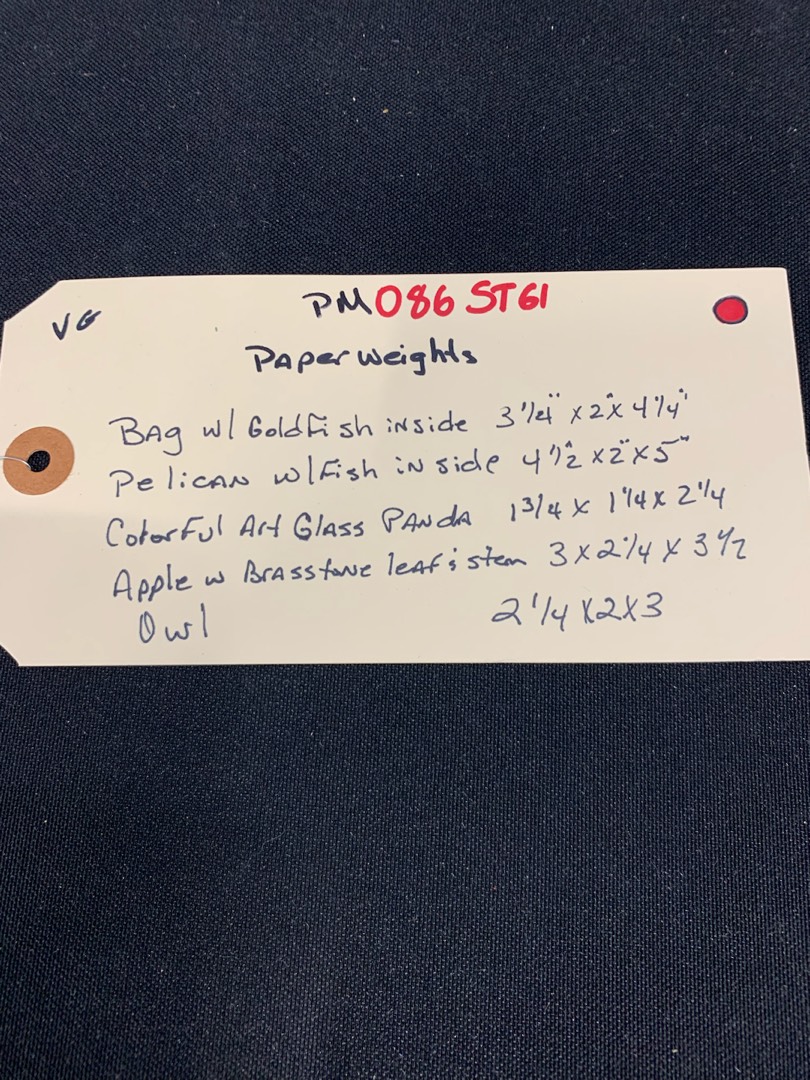 VG
PM086 ST61
Paperweights
Bag w/ Goldfish inside 3 1/4" x 2" x 4 1/4"
Pelican w/Fish inside 4 1/2" x 2" x 5"
Colorful Art Glass Panda 1 3/4 x 1 1/4 x 2 1/4
Apple w Brasstone leaf & stem 3 x 2 1/4 x 3 1/2
Owl 2 1/4 x 2 x 3